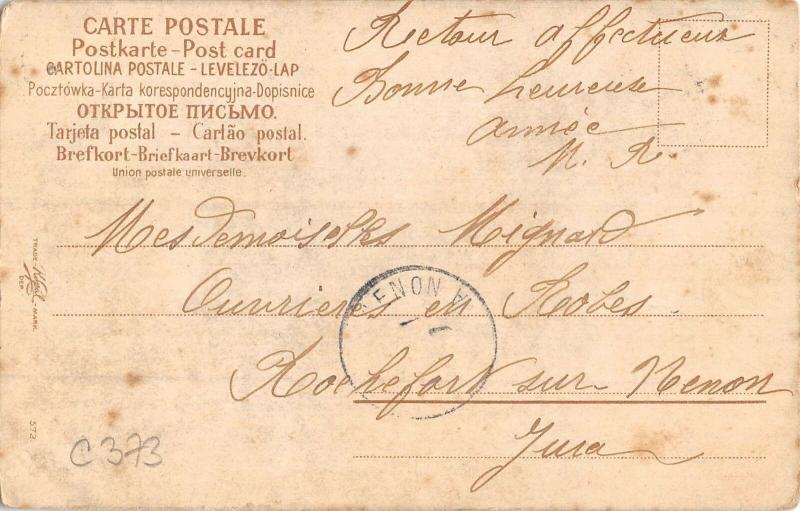 CARTE POSTALE
Postkarte - Post card
CARTOLINA POSTALE - LEVELEZÖ-LAP
Pocztówka-Karta korespondencyjna-Dopisnice
ОТКРЫТОЕ ПИСЬМО.
Tarjeta postal - Cartão postal.
Brefkort-Briefkaart-Brevkort
Union postale universelle.
Retour affectueux
Bonne heureuse
année
M. R.
Mesdemoiselles Mignard
Ouvrières en Robes
Rochefort sur Nenon
Jura
ENON
TRADE MARK.
DEP.
572
C 373